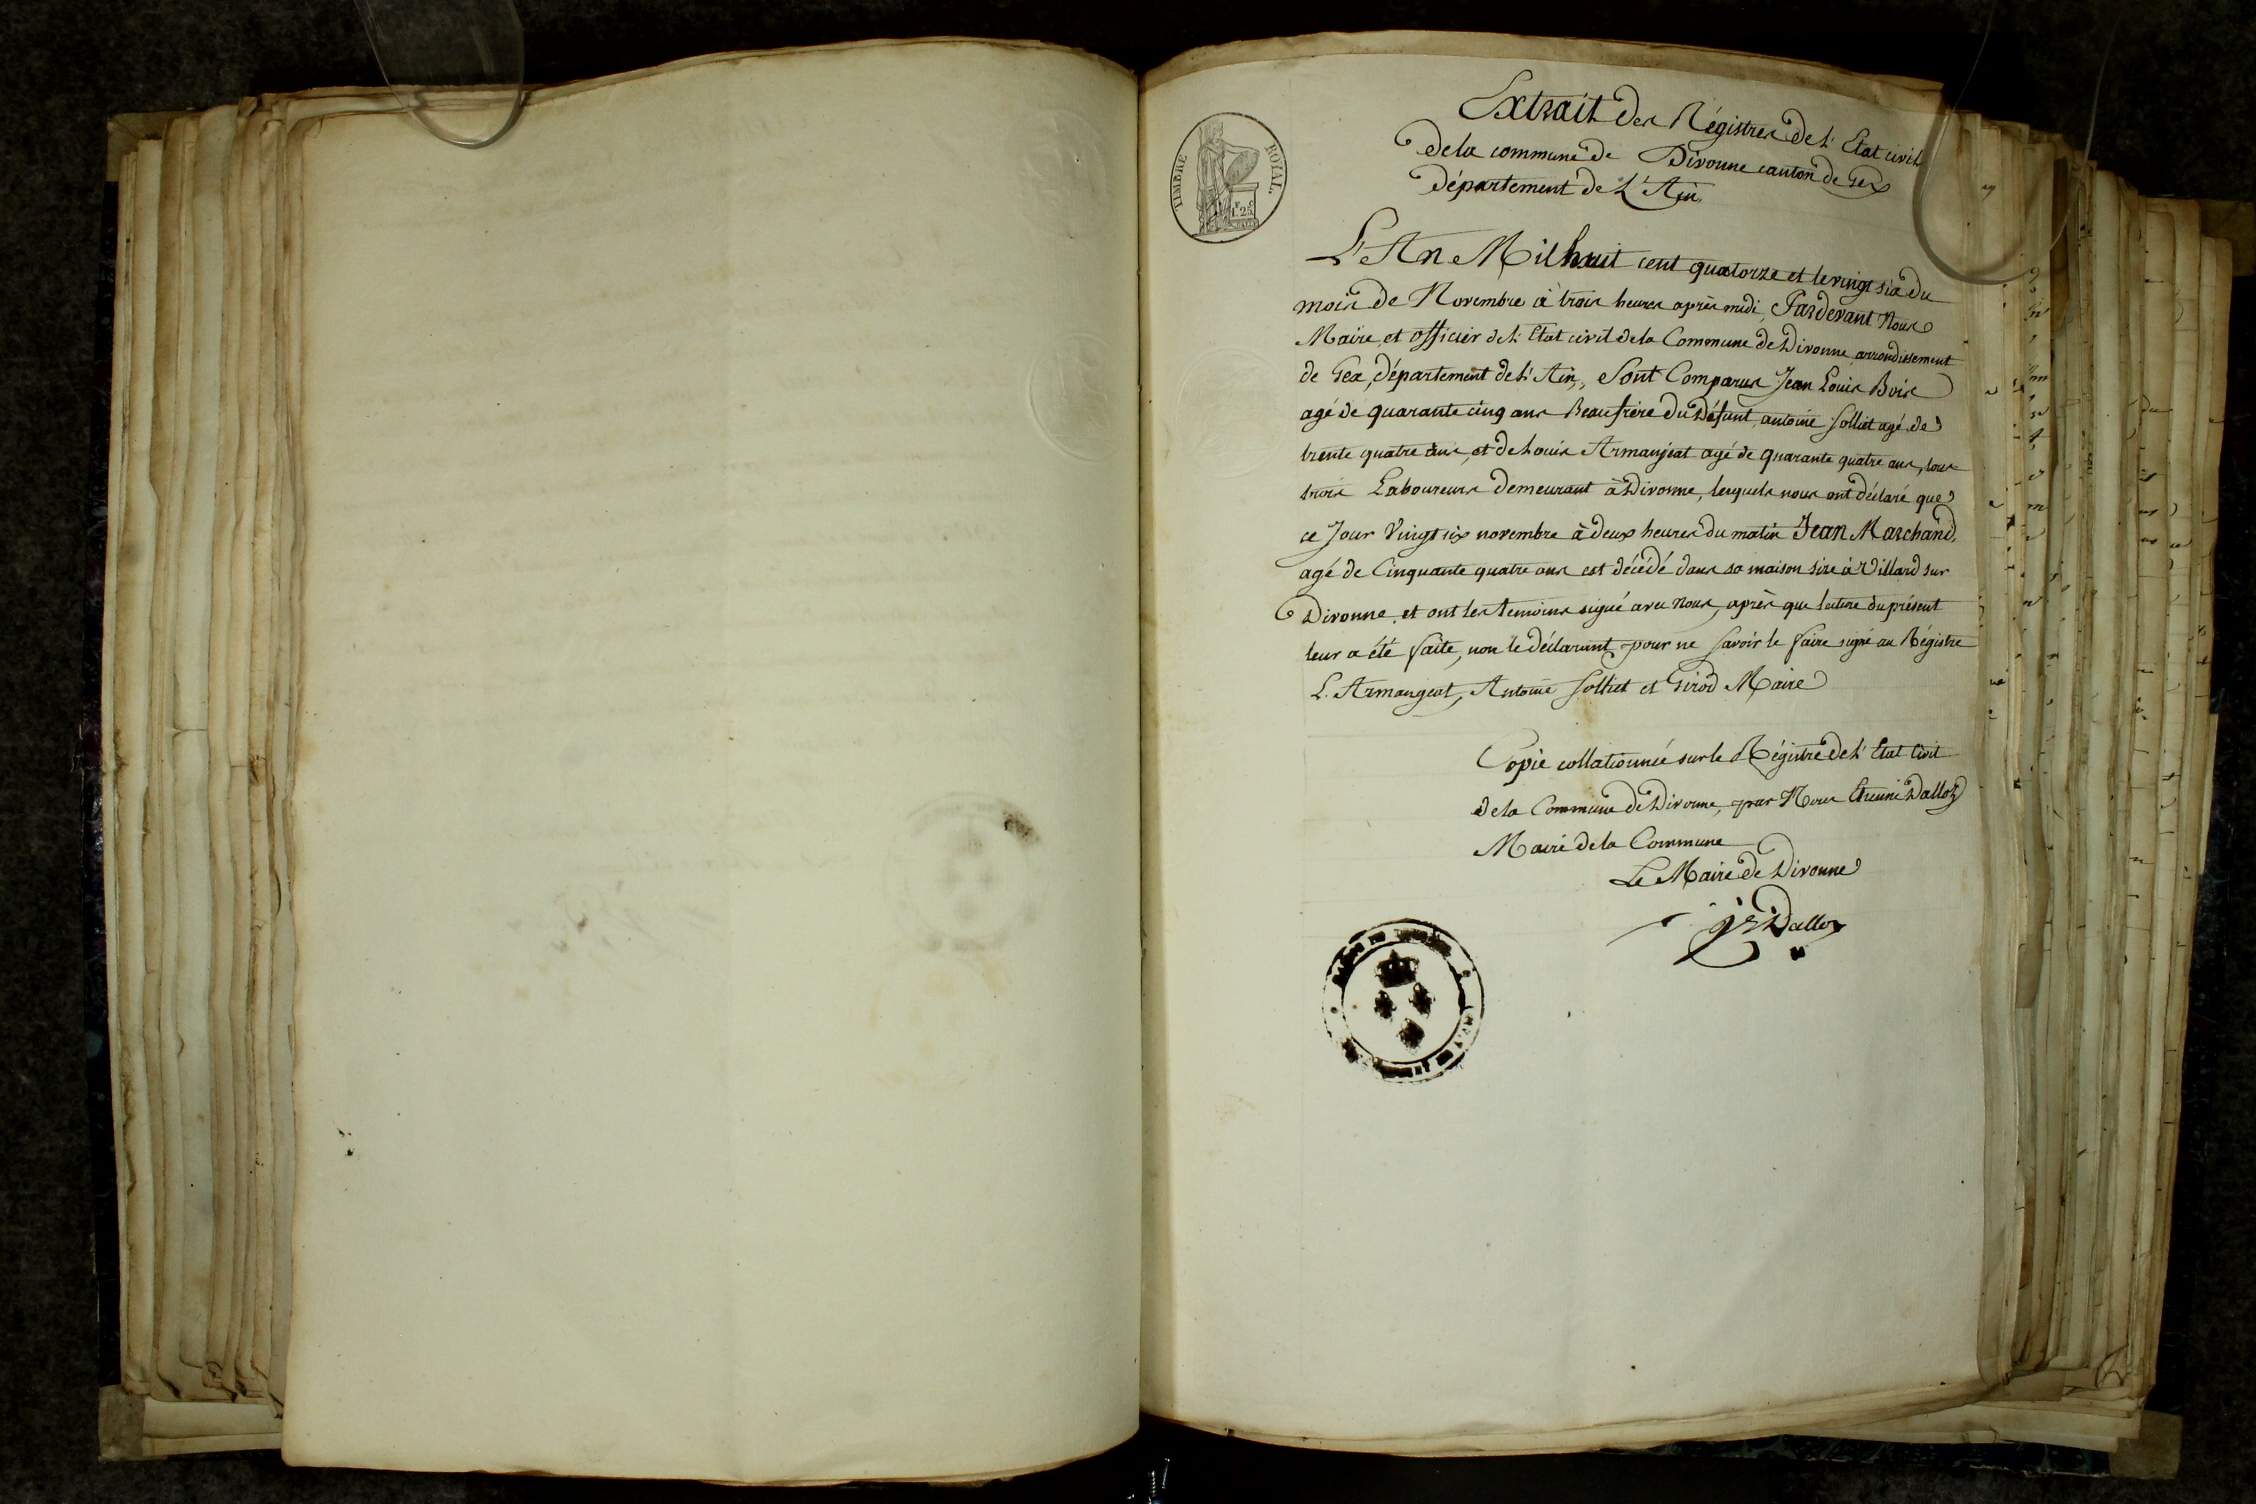 Extrait des Régistres de l'Etat civil
de la commune de Divonne canton de Gex
Département de L'Ain.
TIMBRE ROYAL.
1. 25
L'An Mil huit cent quatorze et le vingt six du
mois de Novembre à trois heures après midi, Pardevant Nous
Maire, et officier de l'Etat civil de la Commune de Divonne arrondissement
de Gex, Département de l'Ain, Sont Comparus Jean Louis Bois
agé de quarante cinq ans Beaufrère du Défunt, antoine Solliet agé de
trente quatre ans, et de Louis Armanjeat agé de quarante quatre ans, tous
trois Laboureurs demeurant à Divonne, lesquels nous ont déclaré que
ce Jour Vingt six novembre à deux heures du matin Jean Marchand,
agé de Cinquante quatre ans est décédé dans sa maison sise à Villard sur
Divonne, et ont les temoins signé avec Nous, après que lecture du présent
leur a été faite, non le déclarant pour ne savoir le faire signé au Régistre
L. Armangeat, Antoine Solliet et Girod Maire
Copie collationnée sur le Régistre de l'Etat Civil
de la Commune de Divonne, par Nous Dalloz
Maire de la Commune
Le Maire de Divonne
Dalloz